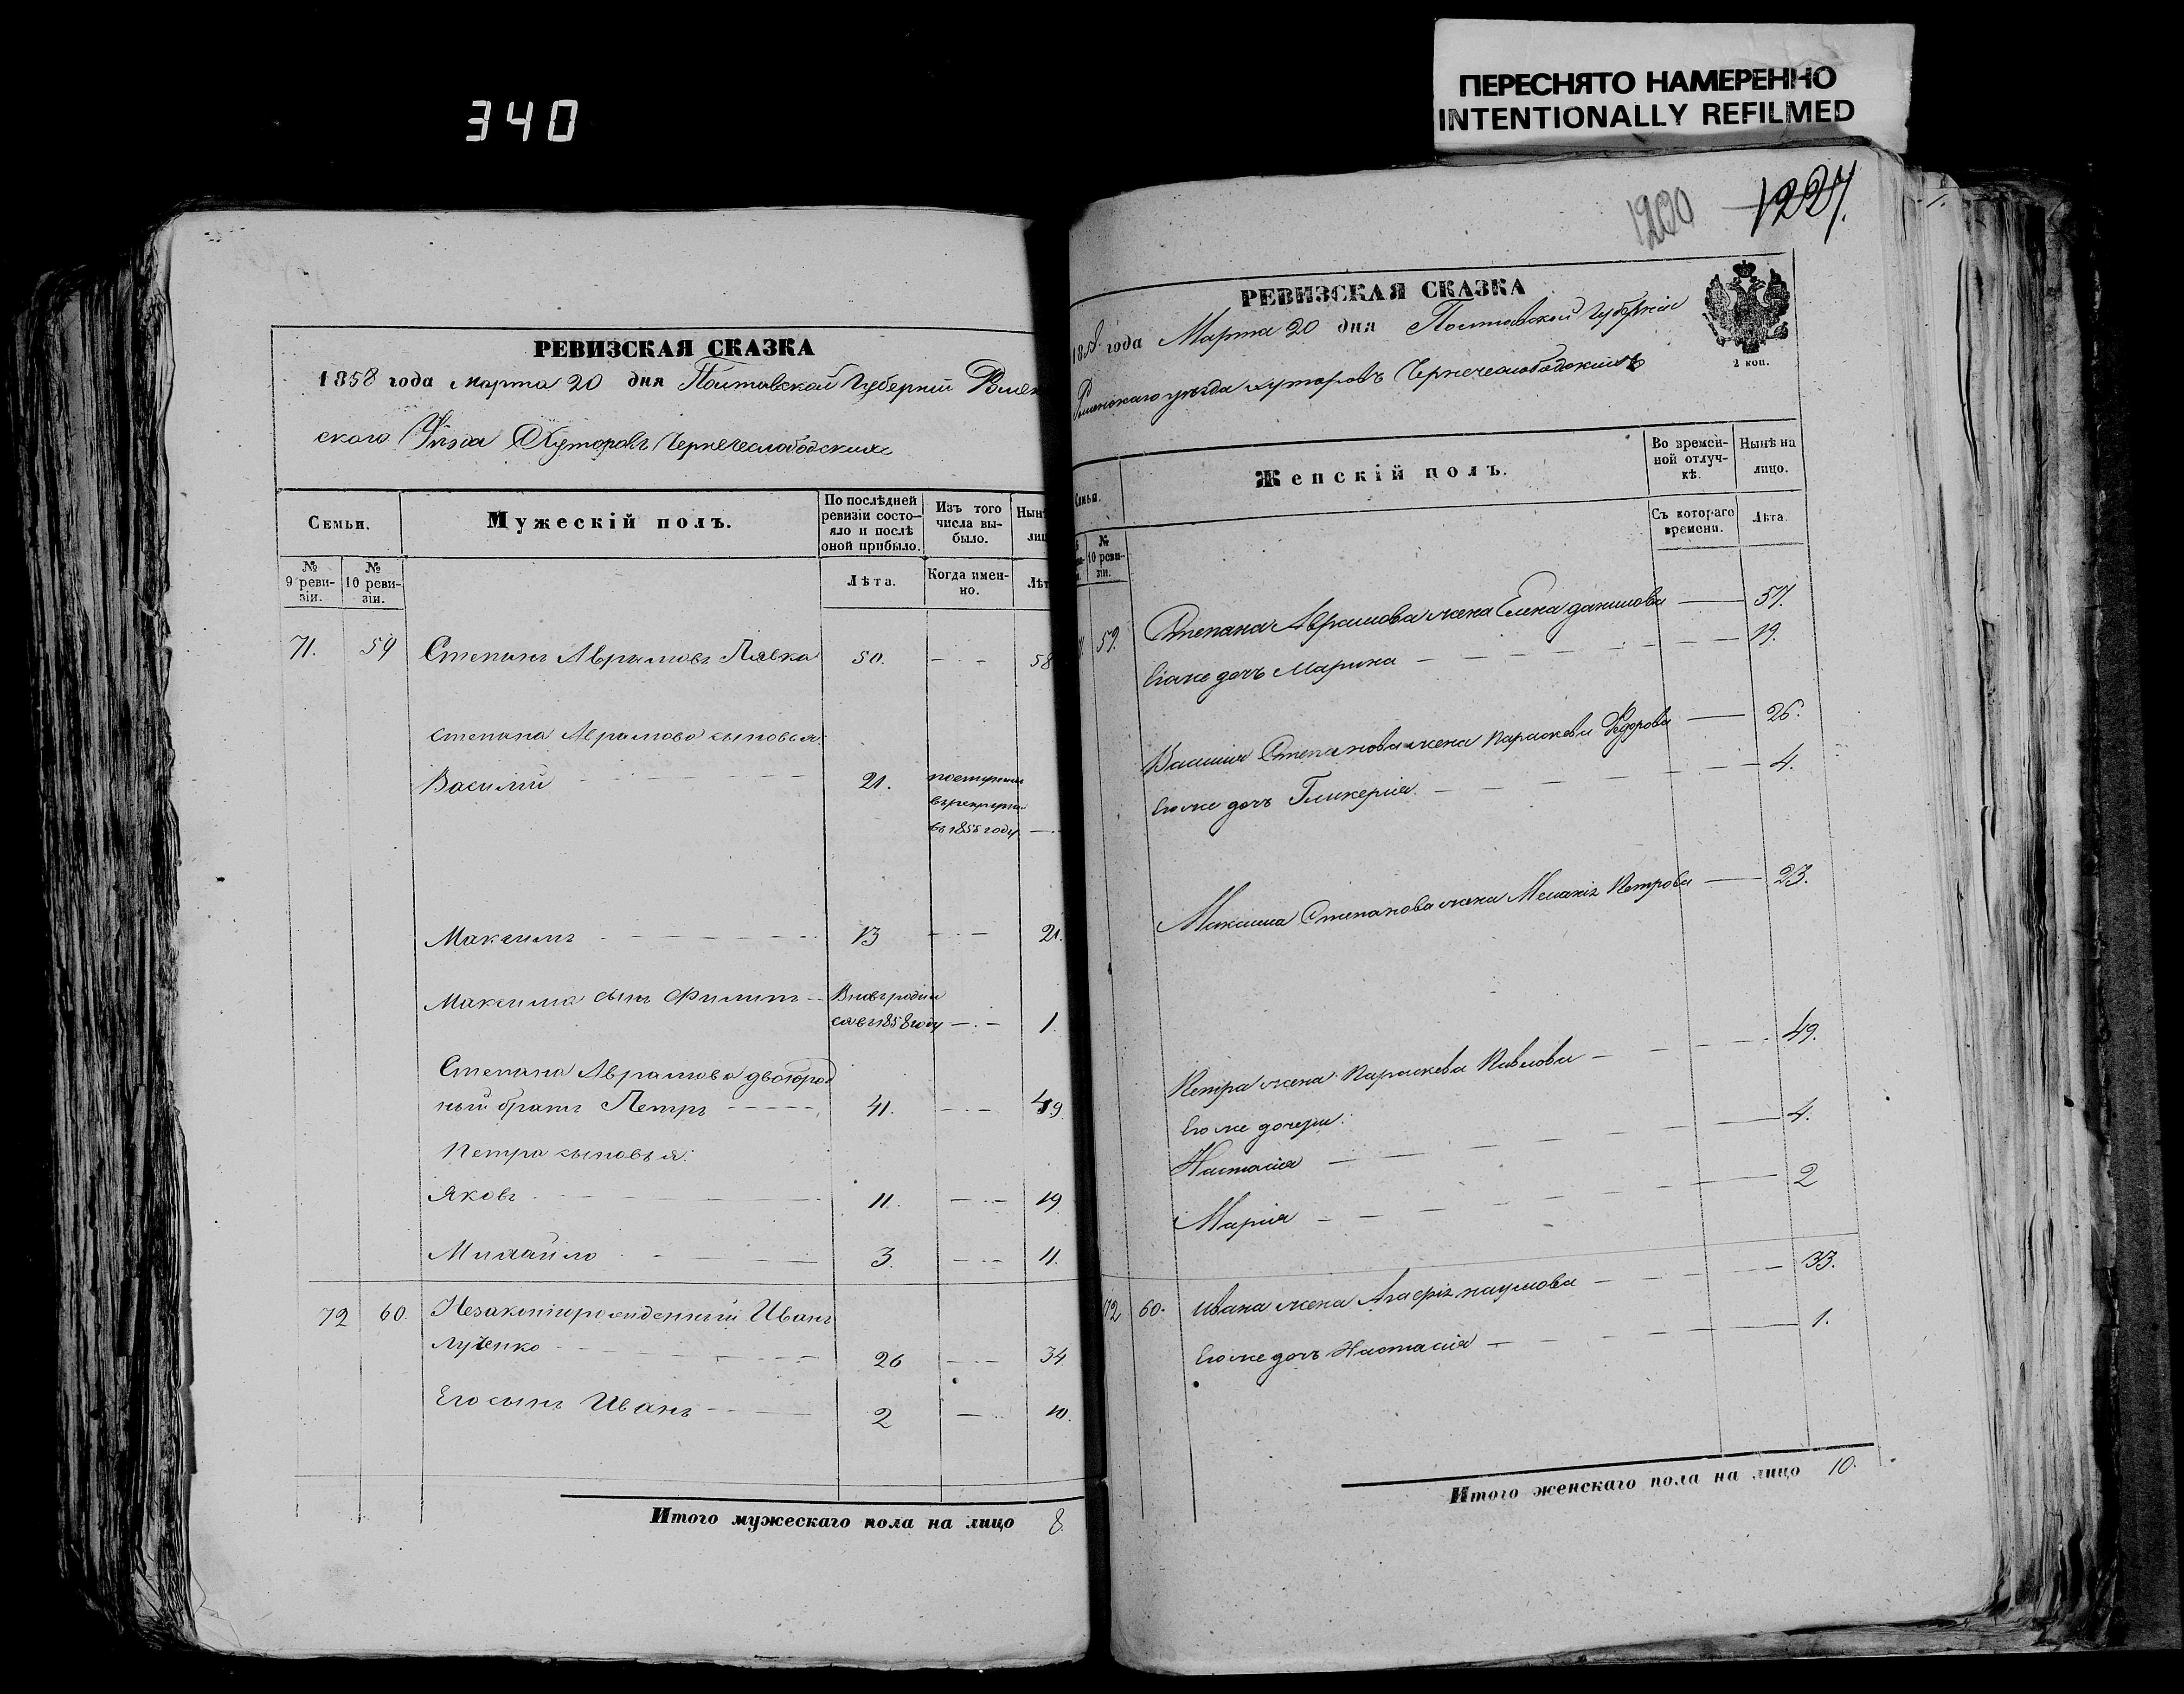 340
ПЕРЕСНЯТО НАМЕРЕННО
INTENTIONALLY REFILMED
РЕВИЗСКАЯ СКАЗКА
1858 года Марта 20 дня Полтавской Губерніи Ромен
ского Уѣзда Хуторовъ Чернечеслободскихъ
Семьи.
Мужескій полъ.
По послѣдней
ревизіи состо-
яло и послѣ
оной прибыло.
Изъ того
числа вы-
было.
Нынѣ
лиц
№
9 реви-
зіи.
№
10 реви-
зіи.
Лѣта.
Когда имен-
но.
Лѣт
71. 59 Степанъ Аврамовъ Лявка 50. 58
Степана Аврамова сыновья:
Василій 21. поступилъ
въ рекруты
въ 1855 году
Максимъ 13 21.
Максима сынъ Филипъ Вновъ родил
ся въ 1858 году 1.
Степана Аврамова двоюрод
ный братъ Петръ 41. 49.
Петра сыновья:
Яковъ 11. 19
Михайло 3. 11.
72 60. Незаконнорожденный Иванъ
Луценко 26 34.
Его сынъ Иванъ 2 10.
Итого мужескаго пола на лицо 8.
1200 1227.
РЕВИЗСКАЯ СКАЗКА
1858 года Марта 20 дня Полтавской Губерніи
Роменскаго уѣзда хуторовъ Чернечеслободскихъ
2 коп.
Семьи.
Женскій полъ.
Во времен-
ной отлуч-
кѣ.
Нынѣ на
лицо.
№
10 реви-
зіи.
Съ котораго
времени.
Лѣта.
59. Степана Аврамова жена Елена данилова 57.
Егоже дочь Марина 19.
Василія Степанова жена Параскева Федорова 26.
Егоже дочь Гликерія 4.
Максима Степанова жена Меланія Петрова 23.
Петра жена Параскева Павлова 49.
Егоже дочери:
Настасія 4.
Марія 2
72 60. Ивана жена Агафія наумова 33.
Егоже дочь Настасія 1.
Итого женскаго пола на лицо 10.